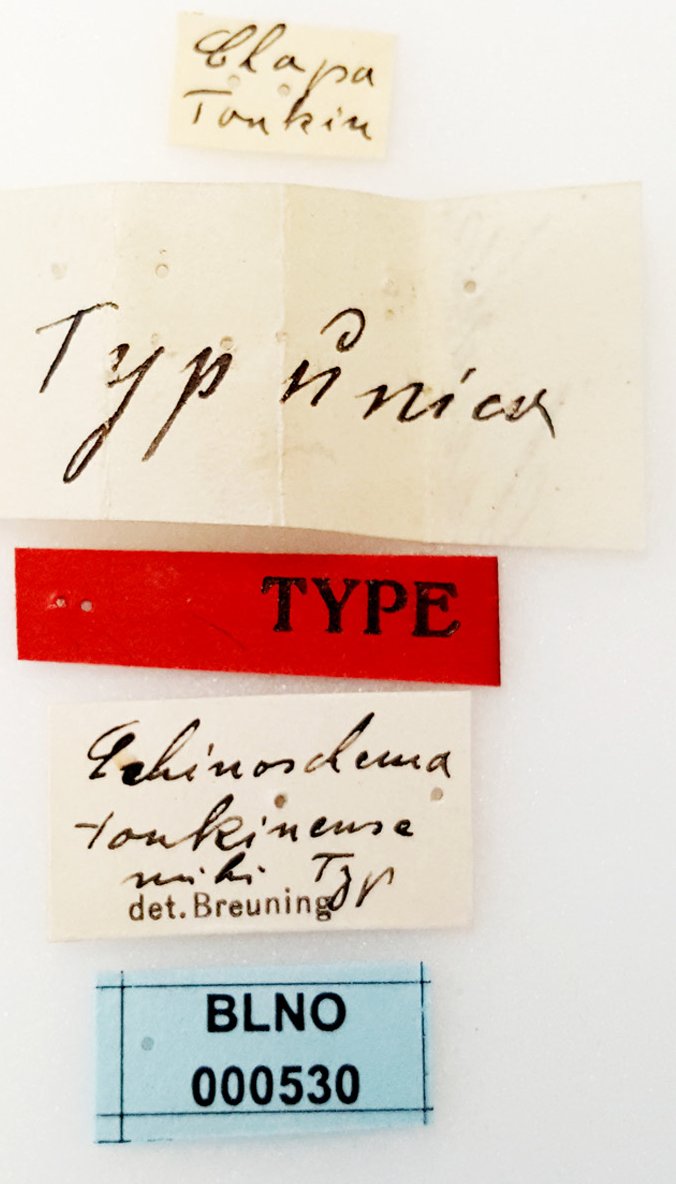 Chapa
Tonkin
Typ unica
TYPE
Echinoschema
tonkinense
mihi Typ
det. Breuning
BLNO
000530